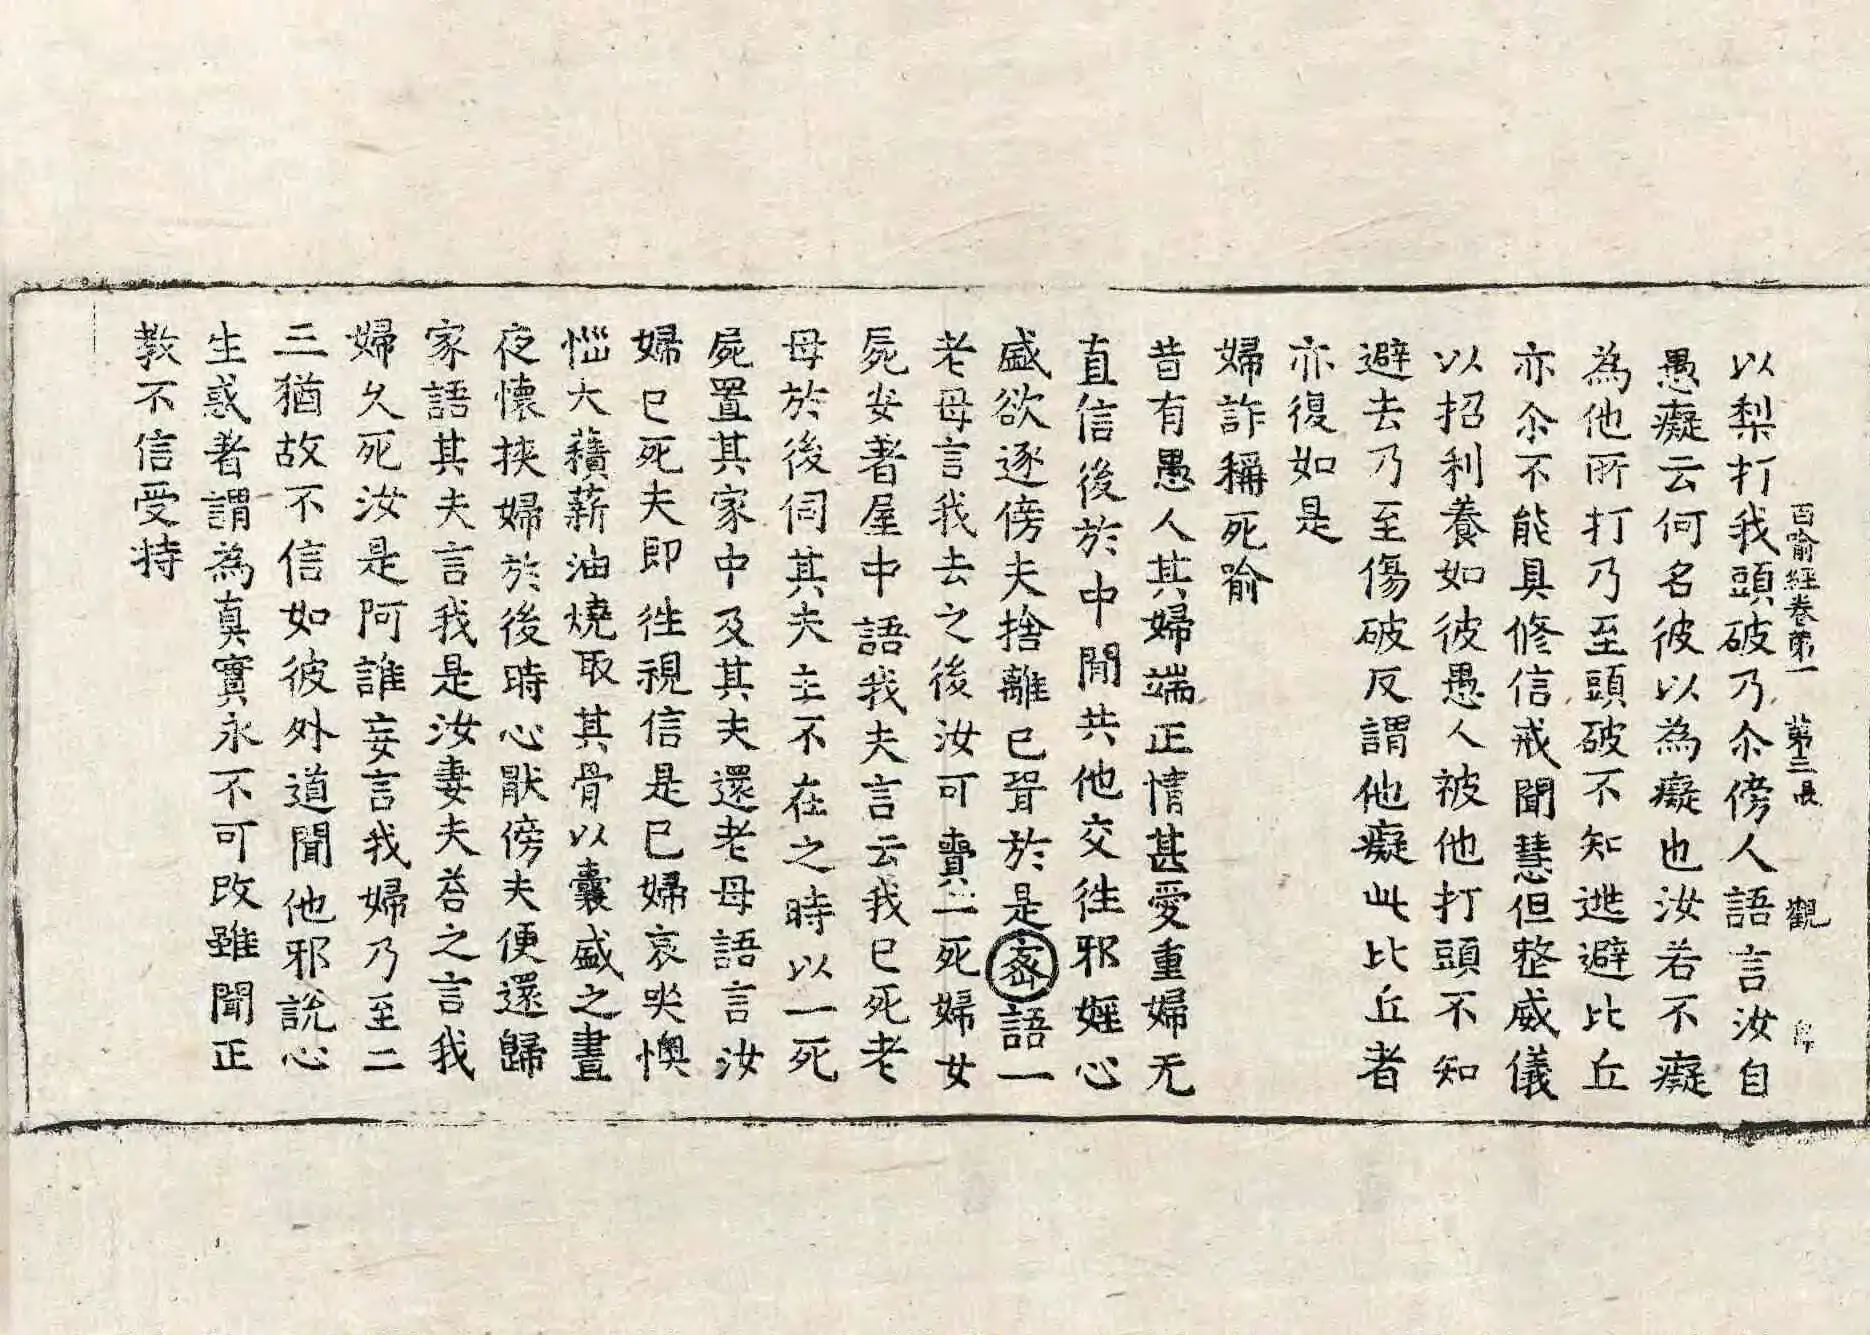 百喻經卷第一 第三張 觀
以梨打我頭破乃尒傍人語言汝自
愚癡云何名彼以為癡也汝若不癡
為他所打乃至頭破不知逃避比丘
亦尒不能具修信戒聞慧但整威儀
以招利養如彼愚人被他打頭不知
避去乃至傷破反謂他癡此比丘者
亦復如是
婦詐稱死喻
昔有愚人其婦端正情甚愛重婦无
直信後於中間共他交往邪婬心
盛欲逐傍夫捨離已聟於是密語一
老母言我去之後汝可賷一死婦女
屍安著屋中語我夫言云我已死老
母於後伺其夫主不在之時以一死
屍置其家中及其夫還老母語言汝
婦已死夫即往視信是已婦哀哭懊
惱大𧂐薪油燒取其骨以囊盛之晝
夜懷挾婦於後時心厭傍夫便還歸
家語其夫言我是汝妻夫荅之言我
婦久死汝是阿誰妄言我婦乃至二
三猶故不信如彼外道聞他邪說心
生惑著謂為真實永不可改雖聞正
教不信受持